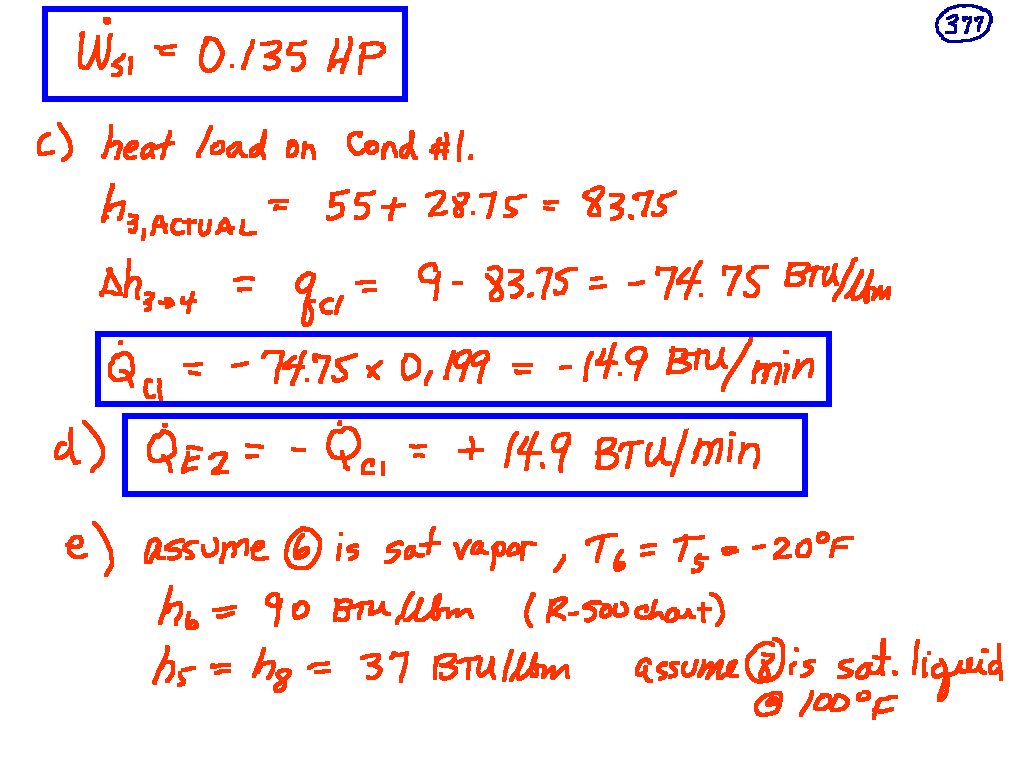 377
Ẇs1 = 0.135 HP
c) heat load on Cond #1.
h3,ACTUAL = 55 + 28.75 = 83.75
Δh3→4 = qc1 = 9 - 83.75 = -74.75 BTU/lbm
Q̇c1 = -74.75 x 0,199 = -14.9 BTU/min
d) Q̇E2 = - Q̇c1 = + 14.9 BTU/min
e) assume ⑥ is sat vapor, T6 = T5 = -20°F
h6 = 90 BTU/lbm (R-500 chart)
h5 = h8 = 37 BTU/lbm assume ⑧ is sat. liquid
@ 100°F